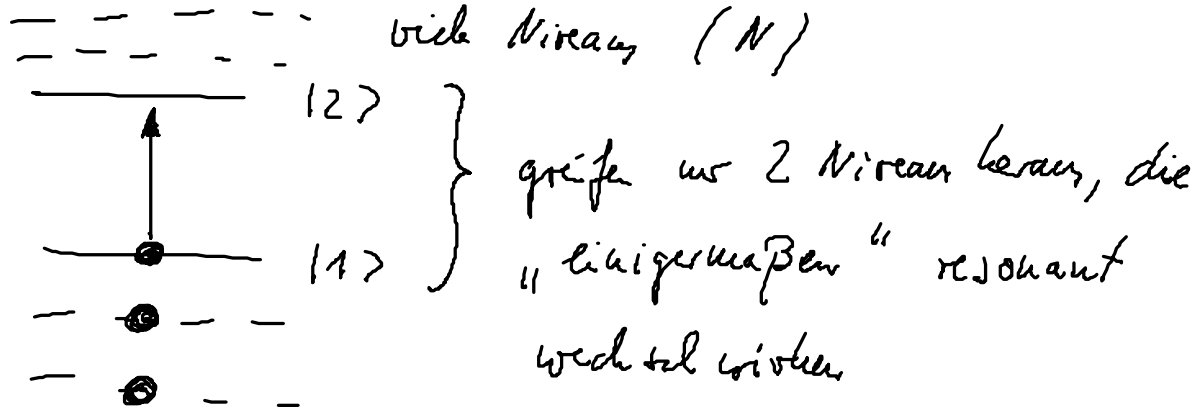 viele Niveaus (N)
|2>
greifen nur 2 Niveaus heraus, die
|1>
„einigermaßen“ resonant
wechselwirken